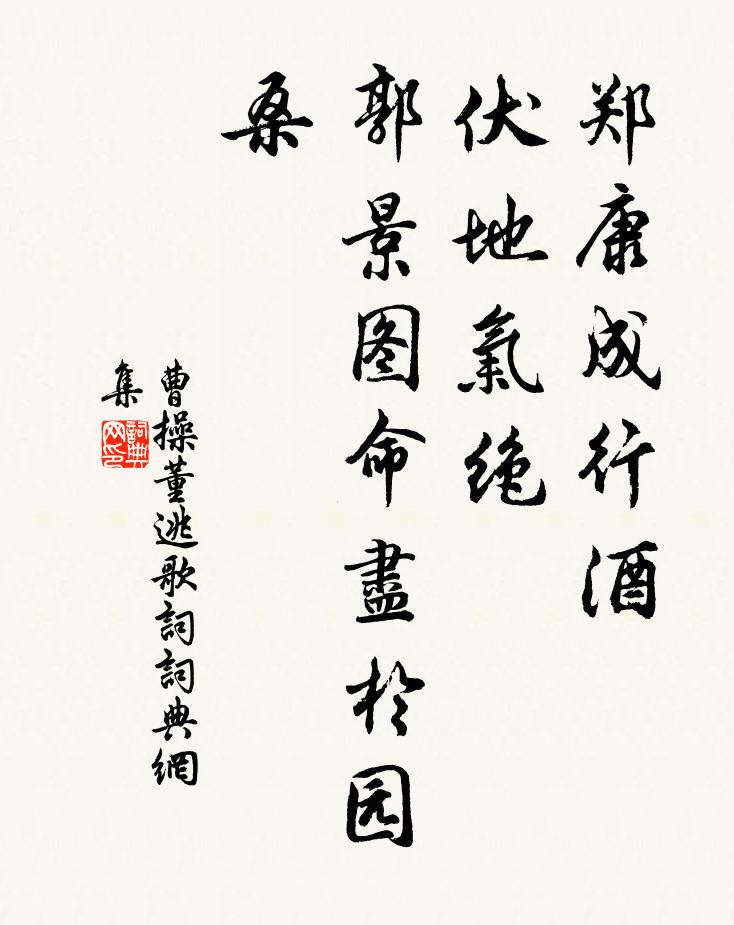 郑康成行酒
伏地氣绝
郭景图命盡於园
桑
曹操董逃歌詞詞典網
集
詞典網印